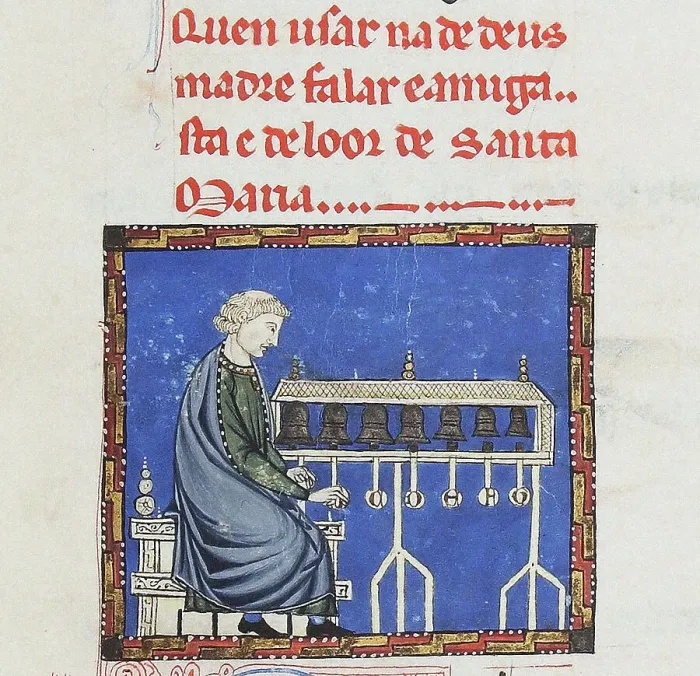 Quen usar na de deus
madre falar e amiga..
sta e de loor de Santa
Maria....